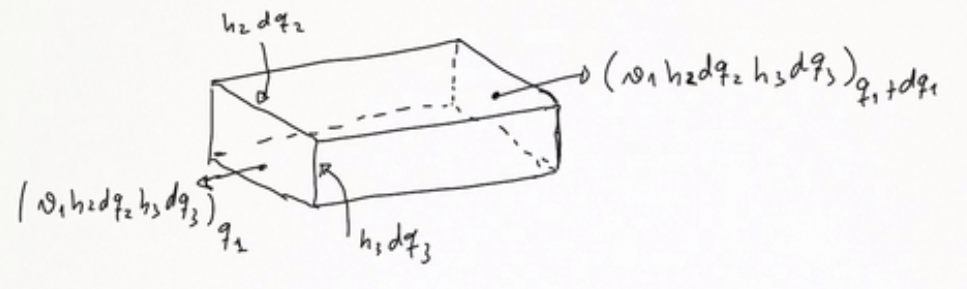 h₂ dq₂
(v₁ h₂dq₂ h₃dq₃)_q₁+dq₁
(v₁h₂dq₂h₃dq₃)_q₁
h₃dq₃